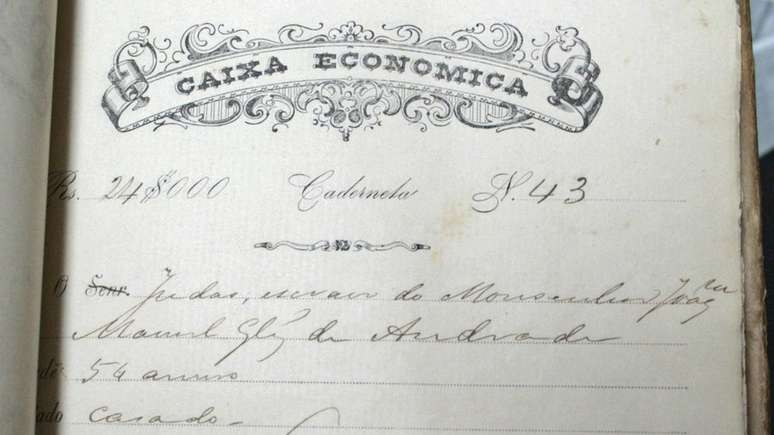 CAIXA ECONOMICA
Rs. 24$000 Caderneta N. 43
O Senr. Judas, escravo do Monsenhor
Manuel de Andrade
de 54 annos
ado casado